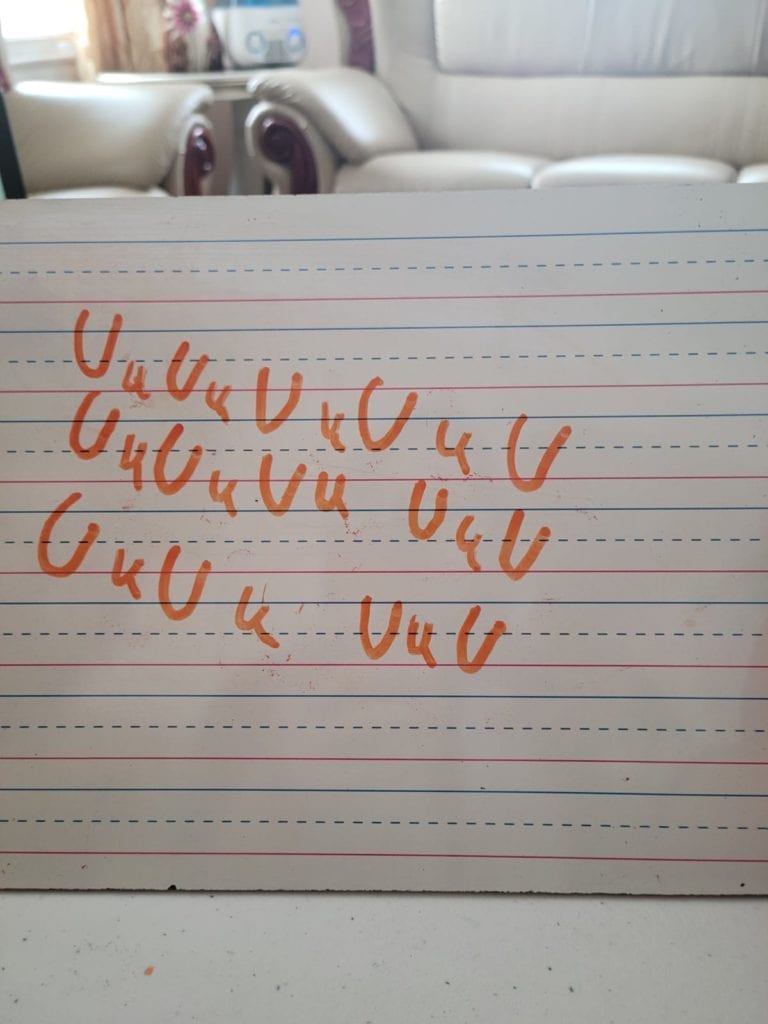 U u U u U u U u U
U u U u U u U u U
U u U u U u U